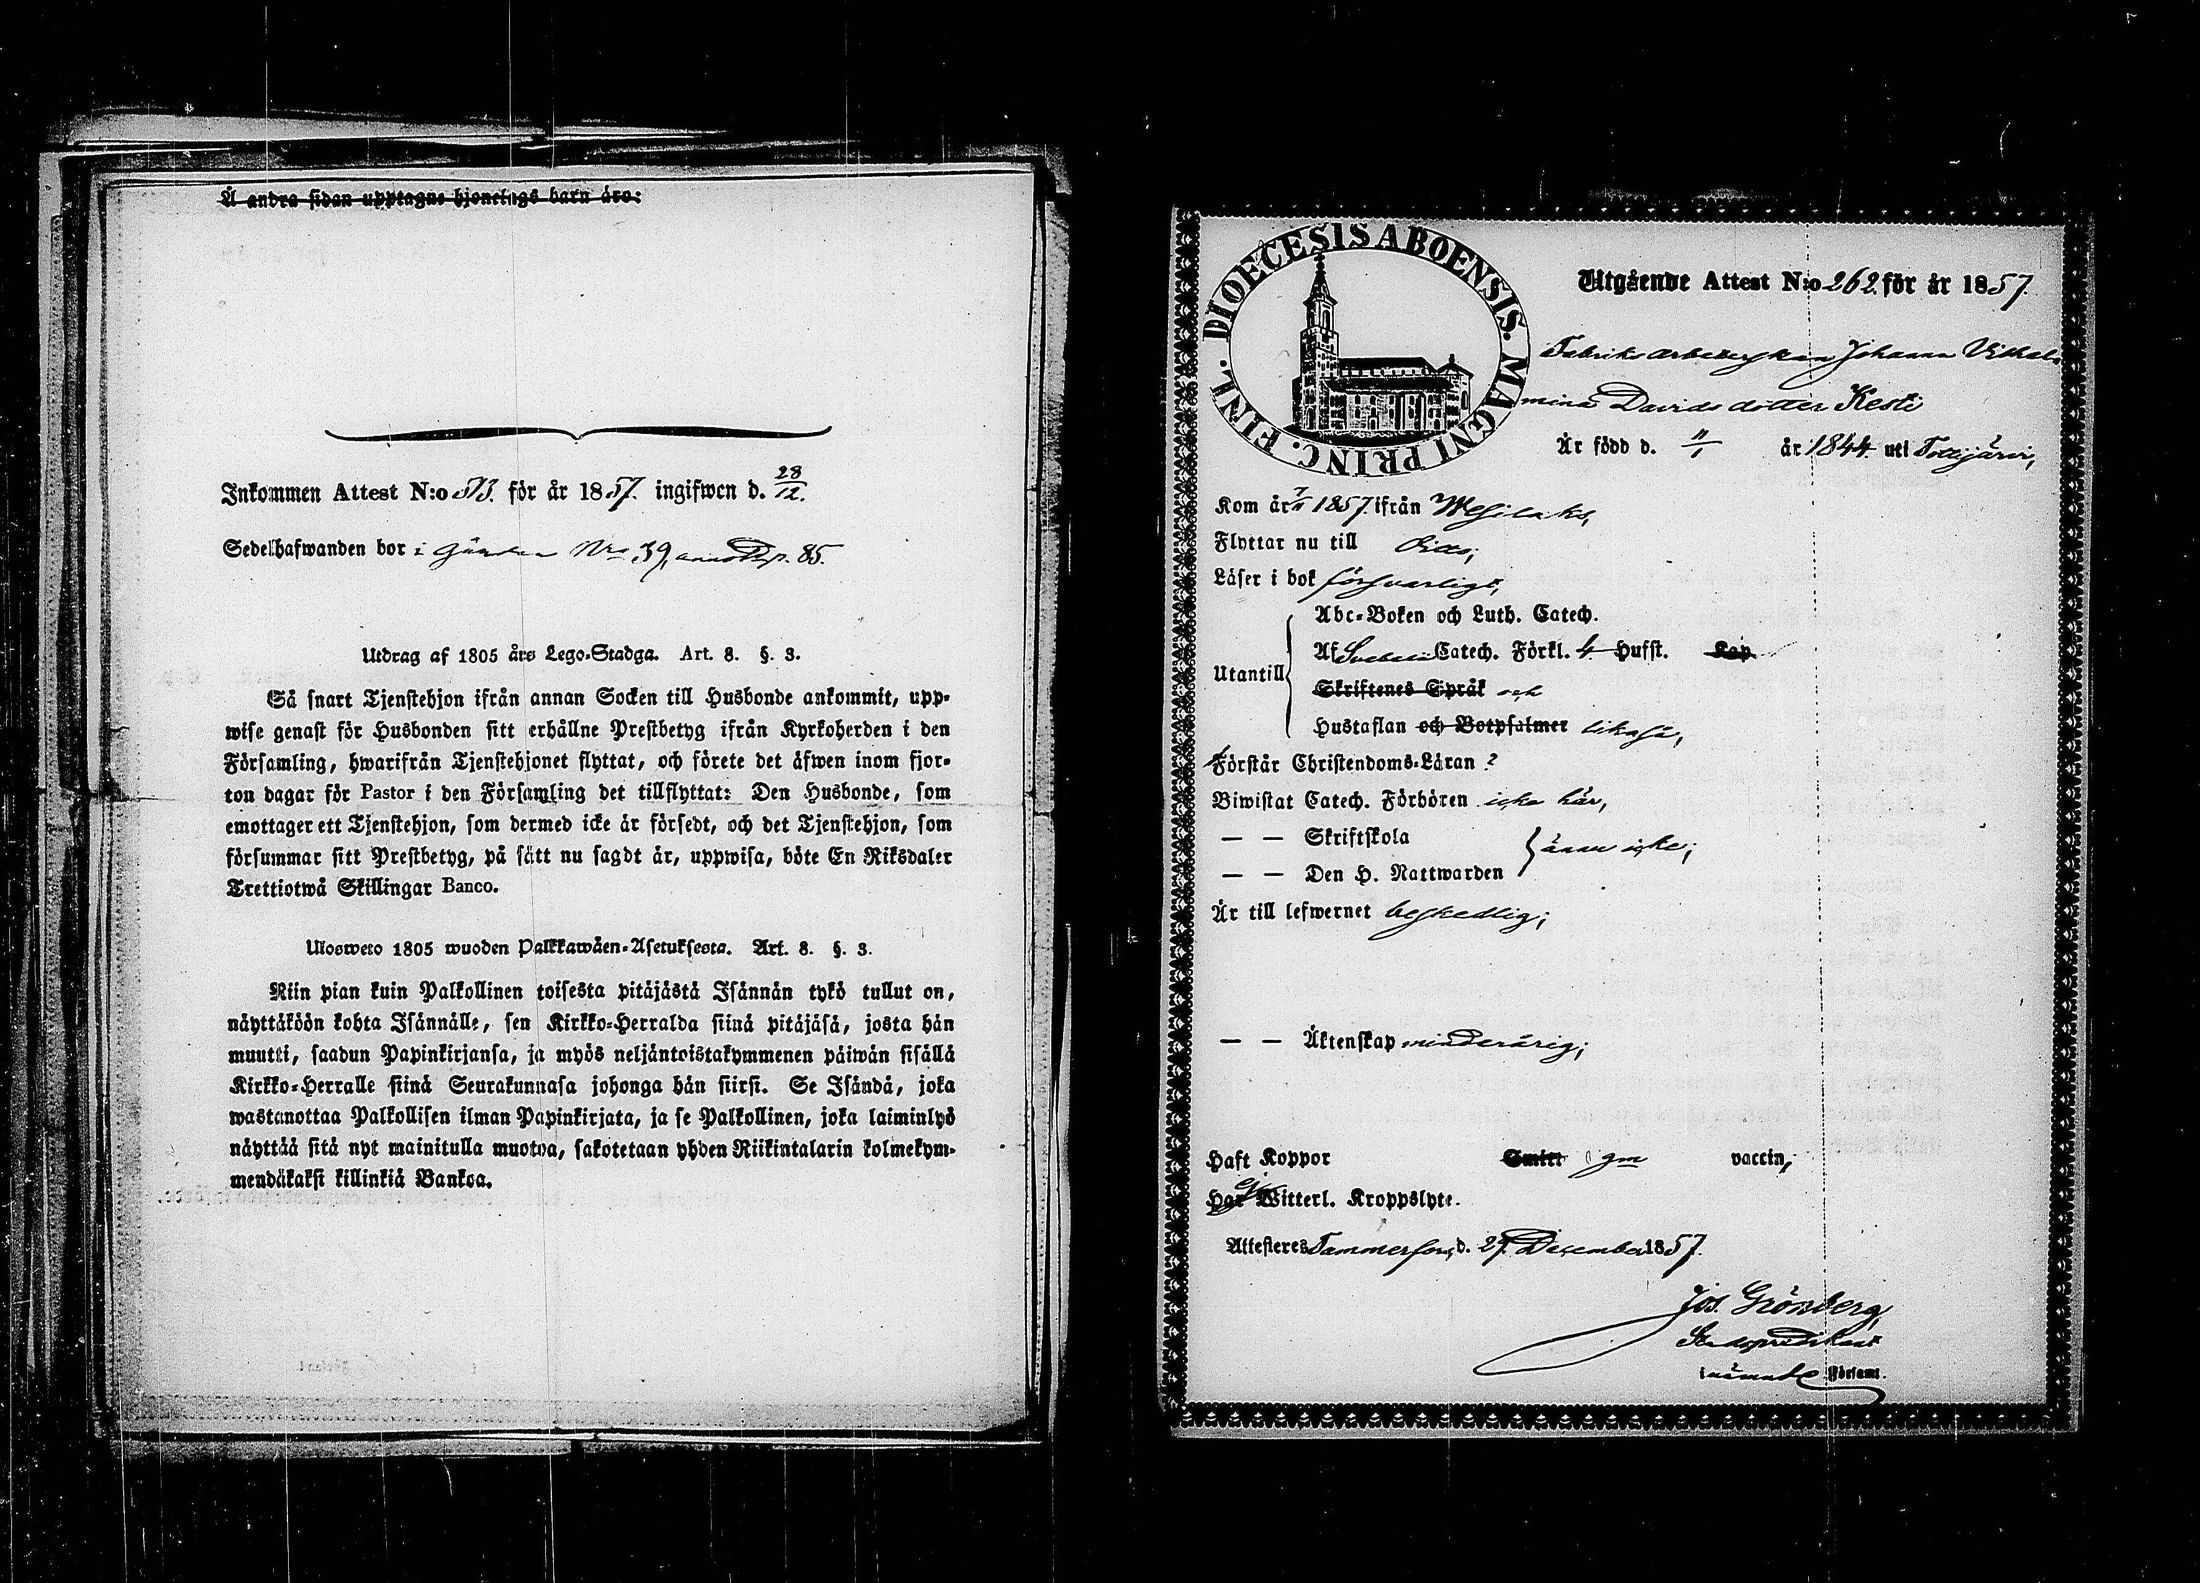 Å andra sidan upptagne hjonelags barn äro:
Inkommen Attest N:o 513. för år 1857. ingifwen d. 28/12.
Sedelhafwanden bor i Gården Nro 39, pag. 85.
Utdrag af 1805 års Lego-Stadga. Art. 8. §. 3.
Så snart Tjenstehjon ifrån annan Socken till Husbonde ankommit, upp-
wise genast för Husbonden sitt erhållne Prestbetyg ifrån Kyrkoherden i den
Församling, hwarifrån Tjenstehjonet flyttat, och förete det äfwen inom fjor-
ton dagar för Pastor i den Församling det tillflyttat: Den Husbonde, som
emottager ett Tjenstehjon, som dermed icke är försedt, och det Tjenstehjon, som
försummar sitt Prestbetyg, på sätt nu sagdt är, uppwisa, böte En Riksdaler
Trettiotwå Skillingar Banco.
Ulosweto 1805 wuoden Palkkawäen-Asetuksesta. Art. 8. §. 3.
Niin pian kuin Palkollinen toisesta pitäjästä Isännän tykö tullut on,
näyttäköön kohta Isännälle, sen Kirkko-Herralda siinä pitäjäsä, josta hän
muutti, saadun Papinkirjansa, ja myös neljäntoistakymmenen päiwän sisällä
Kirkko-Herralle siinä Seurakunnasa johonga hän siirsi. Se Isändä, joka
wastanottaa Palkollisen ilman Papinkirjata, ja se Palkollinen, joka laiminlyö
näyttää sitä nyt mainitulla muotoa, sakotetaan yhden Riikintalarin kolmekym-
mendäkaksi killinkiä Bankoa.
DIOECESIS ABOENSIS. MAGNI PRINC. FINL.
Utgående Attest N:o 262. för år 1857.
Fabriks arbeterskan Johanna Vilhel-
mina Davids dotter Kesti
Är född d. 11/1 år 1844. uti Tottijärvi,
Kom år 7/11 1857. ifrån Wesilaks,
Flyttar nu till Ditto;
Läser i bok försvarligt,
Utantill
Abc-Boken och Luth. Catech.
Af Svebelii Catech. Förkl. 4. Hufst. Kap
Skriftenes Språk och
Hustaflan och Botpsalmer likaså,
Förstår Christendoms-Läran?
Biwistat Catech. Förhören icke här,
— — Skriftskola
ännu icke;
— — Den H. Nattwarden
Är till lefwernet beskedlig;
— — Äktenskap minderårig;
Haft Koppor Smitt gm vaccin,
Har ej Witterl. Kroppslyte.
Attesteres Tammerfors, d. 27. December 1857.
Jos. Grönberg,
Stadspredikant
i nämnde Församl.